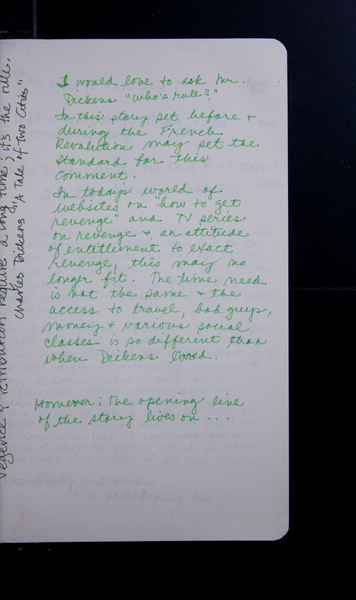 Vegence & retribution require a long time; it's the rule.
Charles Dickens "A Tale of Two Cities"
I would love to ask Mr.
Dickens "who's rule?"
In this story set before &
during the French
Revolution may set the
standard for this
comment.
In today's world of
websites on "how to get
revenge" and TV series
on revenge & an attitude
of entitlement to exact
revenge, this may no
longer fit. The time need
is not the same & the
access to travel, bad guys,
money & various social
classes is so different than
when Dickens lived.
However: the opening line
of the story lives on ...